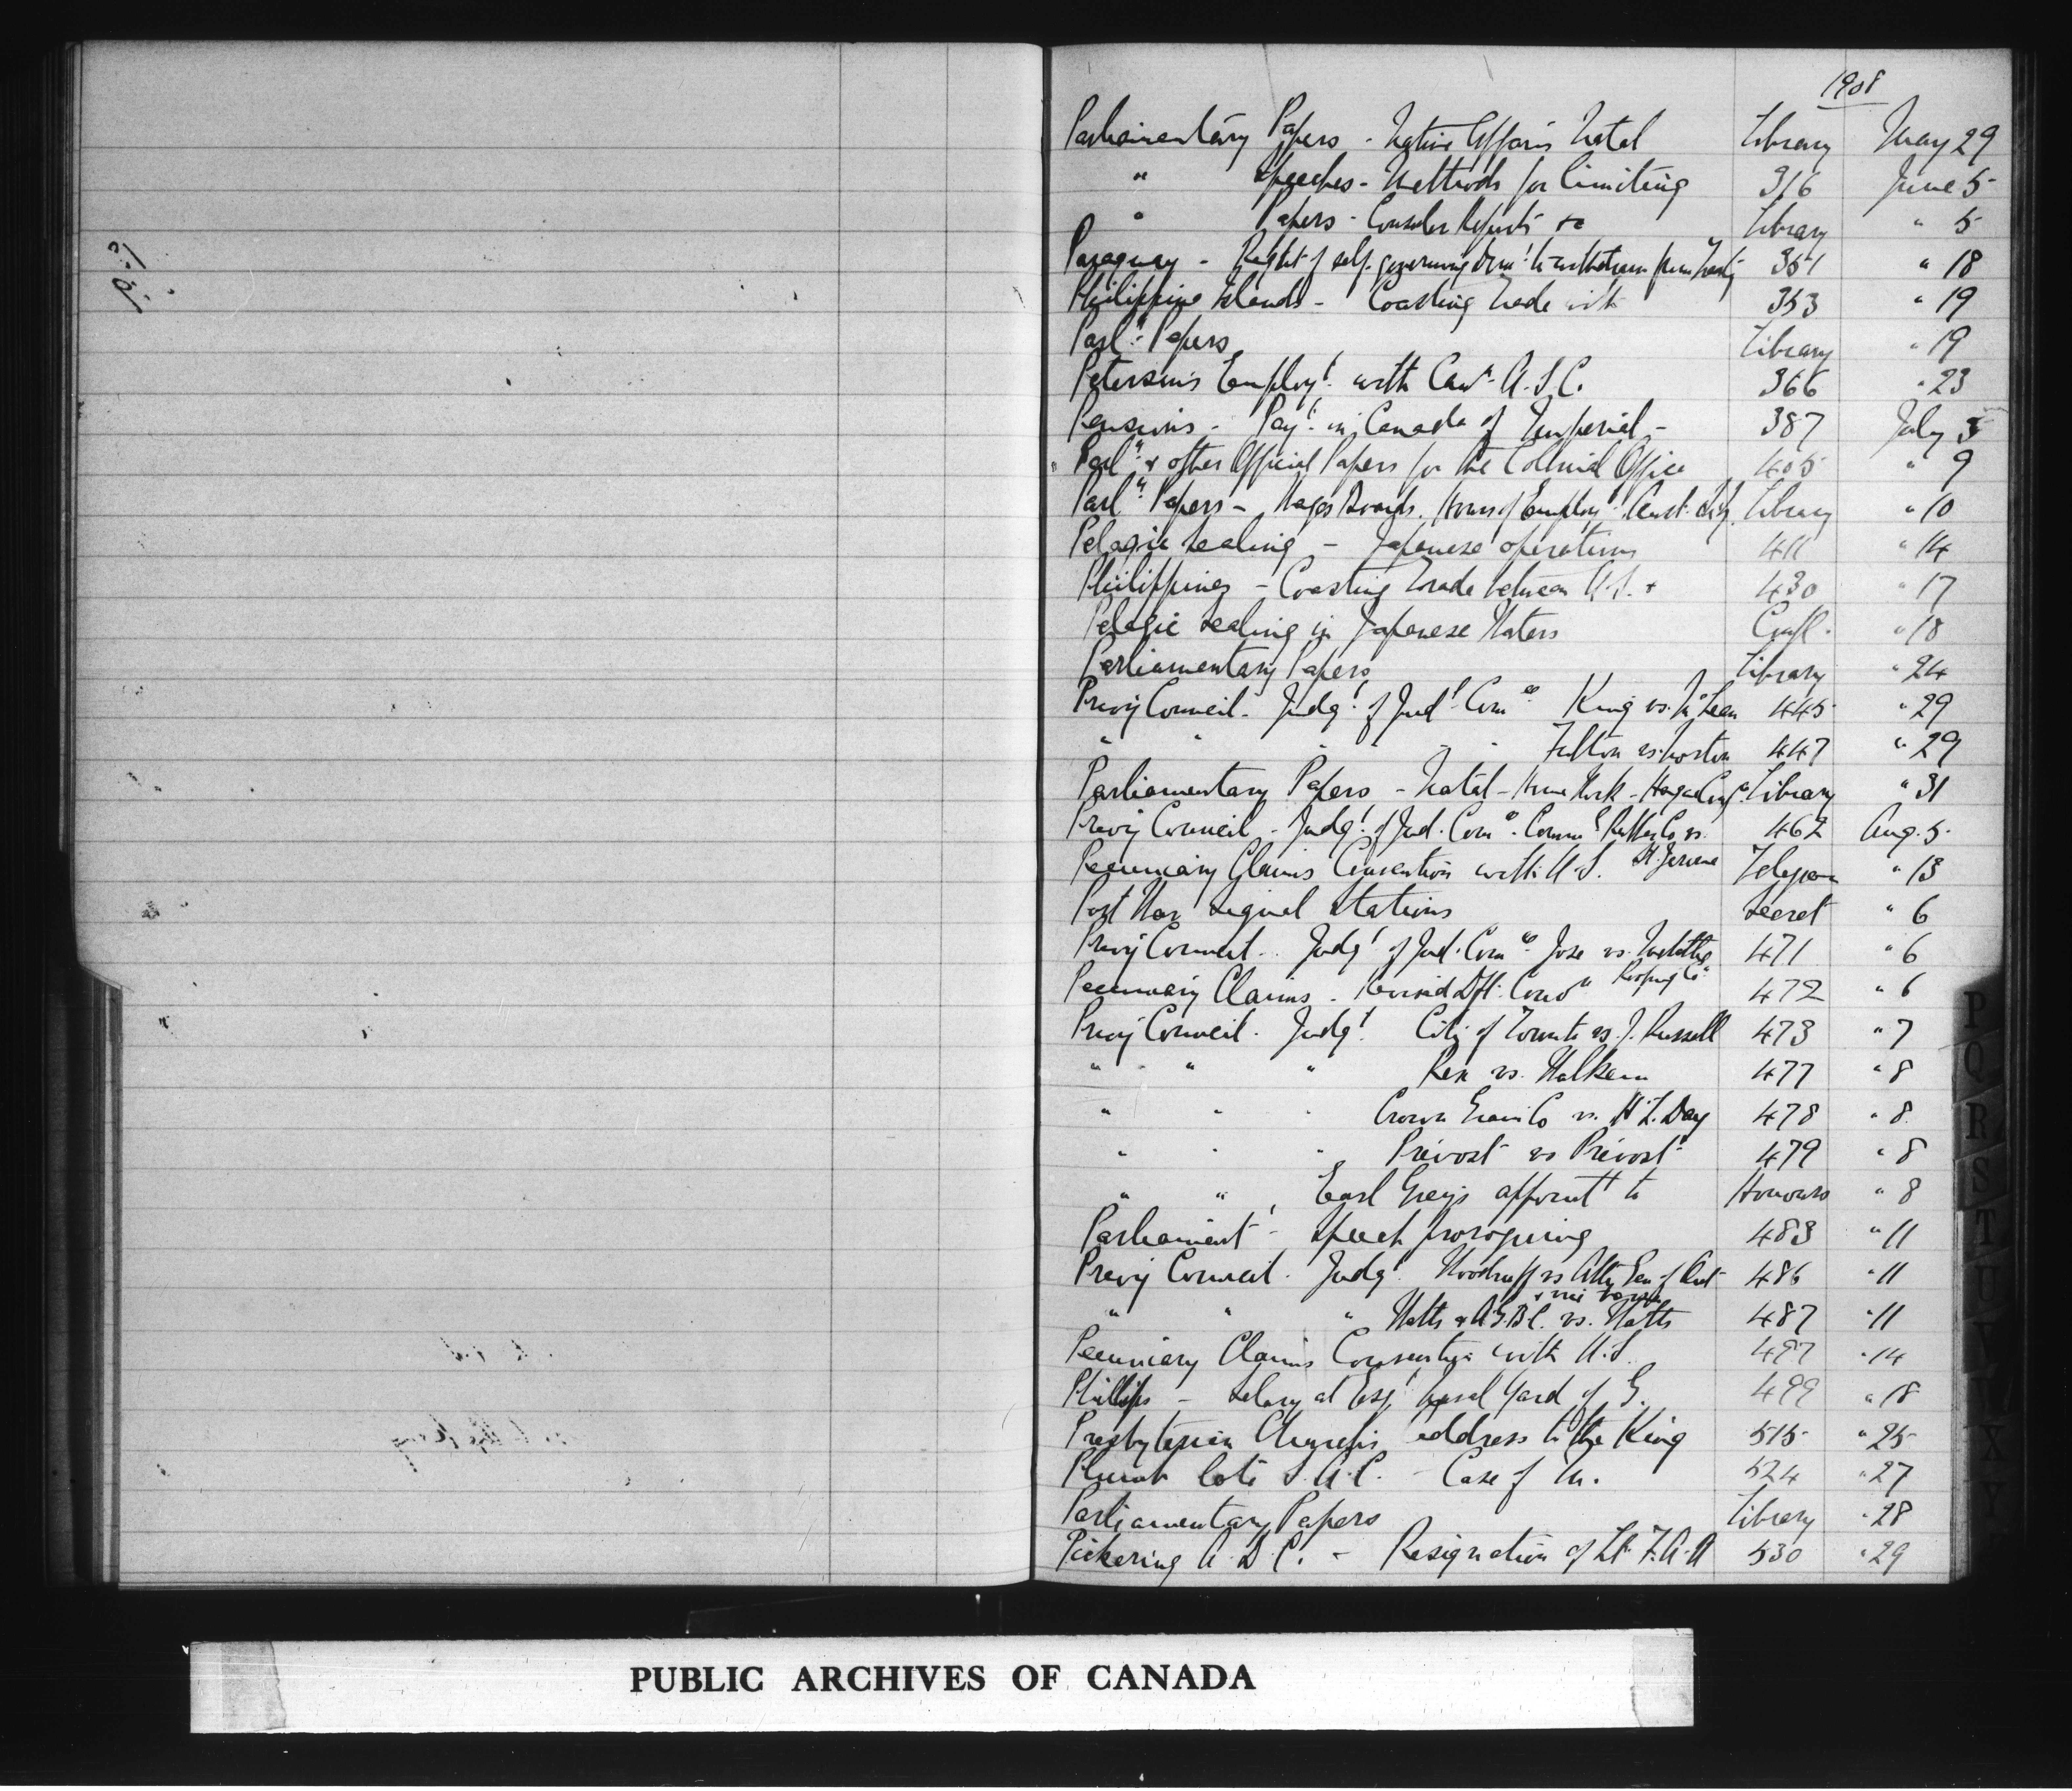 1908
Parliamentary Papers - Native Affairs Natal Library May 29
" Speeches - Methods for limiting 316 June 5
" Papers - Consular Reports &c Library " 5
Paraguay - Right of self-governing Dom. to withdraw from Treaty 351 " 18
Philippine Islands - Coasting trade with 353 " 19
Parl.y Papers Library " 19
Peterson's Employt. with Can. A.S.C. 366 " 23
Pensions - Payt. in Canada of Imperial - 387 July 3
Parly. & other Official Papers for the Colonial Office 405 " 9
Parly. Papers - Wages Boards. Hours of Employt. Library " 10
Pelagic Sealing - Japanese operations 411 " 14
Philippines - Coasting trade between U.S. & 430 " 17
Pelagic Sealing in Japanese Waters Confl. " 18
Parliamentary Papers Library " 24
Privy Council - Judgt. of Judl. Comee. King vs. 445 " 29
" " " " " " vs. Norton 447 " 29
Parliamentary Papers - Natal - Home Work - Hague Confce. Library " 31
Privy Council - Judgt. of Jud. Come. Comml. Rubber Co vs. 462 Aug. 5
St. Jerome
Pecuniary Claims Convention with U.S. Telegram " 13
Port War Signal Stations Secret " 6
Privy Council - Judgt. of Jud. Comee. Jose vs. Metallic 471 " 6
Roofing Co.
Pecuniary Claims - Revised Dft. Convn 472 " 6
Privy Council. Judgt. City of Toronto vs. J. Russell 473 " 7
" " " Rex vs. Walkem 477 " 8
" " " Crown Grain Co vs. H.L. Day 478 " 8
" " " Prevost vs Prevost 479 " 8
" " Earl Grey's appointt to Honours " 8
Parliament - Speech proroguing 483 " 11
Privy Council. Judgt. Woodruff vs Atty Gen of Ont 486 " 11
& vice versa
" " " Watts & A.G.B.C. vs. Watts 487 " 11
Pecuniary Claims Convention with U.S. 497 " 14
Phillips - Salary at Esqt. Naval Yard of G. 499 " 18
Presbyterian Church's address to the King 515 " 25
Plumb late S.A.C. - Case of M. 524 " 27
Parliamentary Papers Library " 28
Pickering A.D.C. - Resignation of Lt. F.A.A 530 " 29
P
Q
R
S
T
U
V
X
Y
PUBLIC ARCHIVES OF CANADA